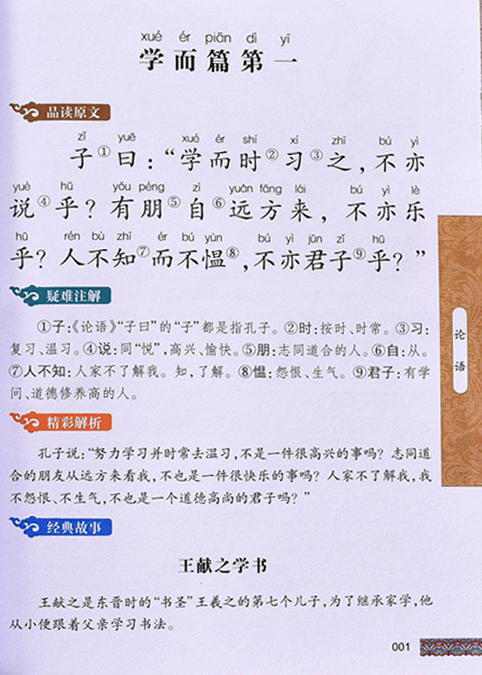 xué ér piān dì yī
学而篇第一
品读原文
zǐ yuē xué ér shí xí zhī bú yì
子①曰：“学而时②习③之，不亦
yuè hū yǒu péng zì yuǎn fāng lái bú yì lè
说④乎？有朋⑤自⑥远方来，不亦乐
hū rén bù zhī ér bú yùn bú yì jūn zǐ hū
乎？人不知⑦而不愠⑧，不亦君子⑨乎？”
疑难注解
①子：《论语》“子曰”的“子”都是指孔子。②时：按时、时常。③习：
复习、温习。④说：同“悦”，高兴、愉快。⑤朋：志同道合的人。⑥自：从。
⑦人不知：人家不了解我。知，了解。⑧愠：怨恨、生气。⑨君子：有学
问、道德修养高的人。
精彩解析
孔子说：“努力学习并时常去温习，不是一件很高兴的事吗？志同道
合的朋友从远方来看我，不也是一件很快乐的事吗？人家不了解我，我
不怨恨、不生气，不也是一个道德高尚的君子吗？”
经典故事
王献之学书
王献之是东晋时的“书圣”王羲之的第七个儿子，为了继承家学，他
从小便跟着父亲学习书法。
论语
001